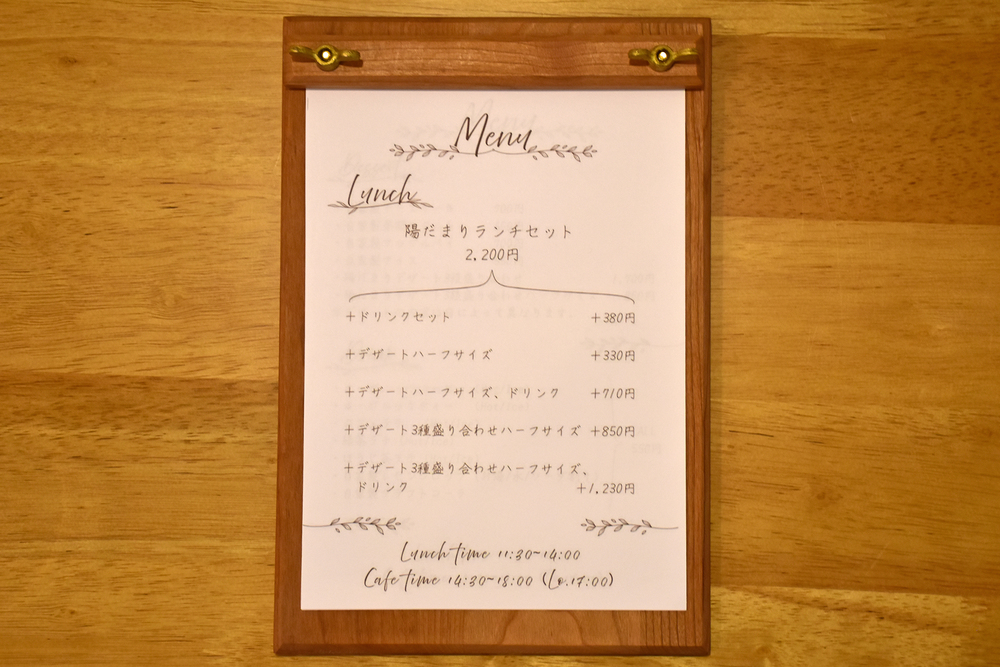 Menu
Lunch
陽だまりランチセット
2,200円
+ドリンクセット +380円
+デザートハーフサイズ +330円
+デザートハーフサイズ、ドリンク +710円
+デザート3種盛り合わせハーフサイズ +850円
+デザート3種盛り合わせハーフサイズ、
ドリンク +1,230円
Lunch time 11:30~14:00
Cafe time 14:30~18:00 (Lo.17:00)